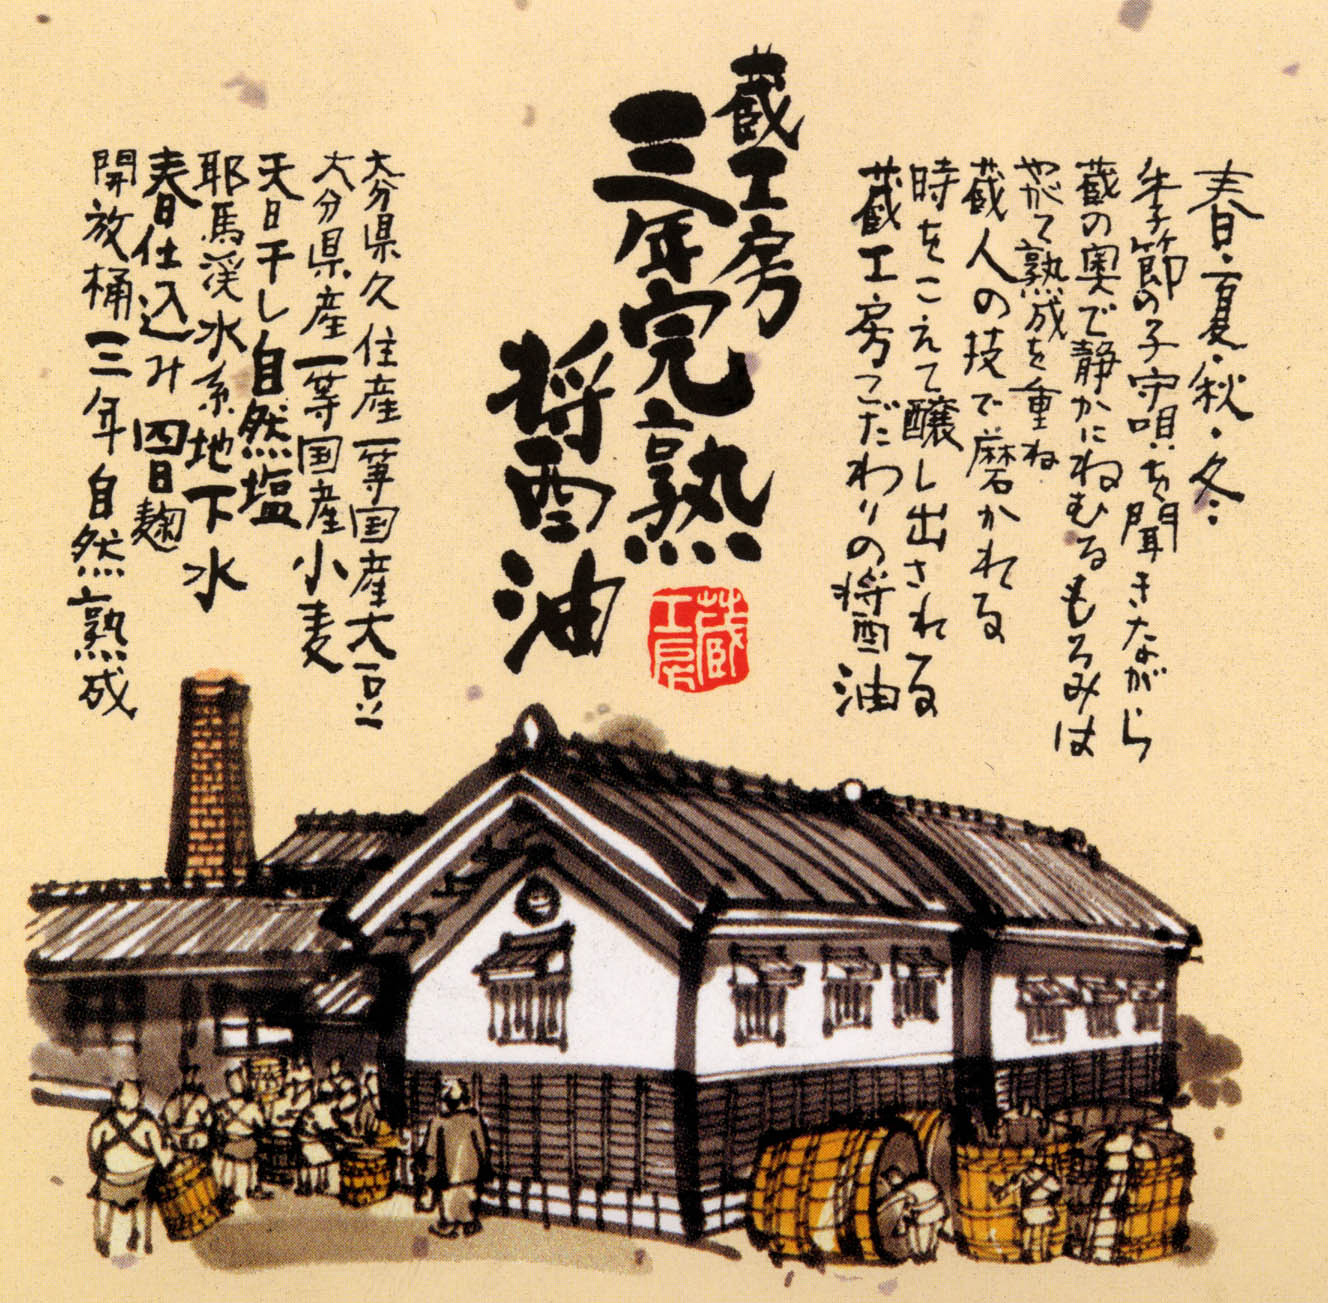 春・夏・秋・冬…
季節の子守唄を聞きながら
蔵の奥で静かにねむるもろみは
やがて熟成を重ね
蔵人の技で磨かれる
時をこえて醸し出される
蔵工房こだわりの醤油
蔵工房
三年完熟
醤油
蔵工房
大分県久住産一等国産大豆
大分県産一等国産小麦
天日干し自然塩
耶馬渓水系地下水
春仕込み四日麹
開放桶三年自然熟成